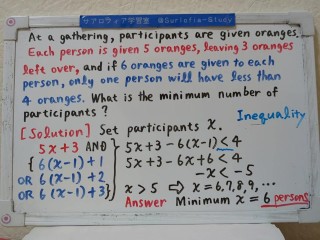 サアロフィア学習室 @Surlofia-Study
At a gathering, participants are given oranges.
Each person is given 5 oranges, leaving 3 oranges
left over, and if 6 oranges are given to each
person, only one person will have less than
4 oranges. What is the minimum number of
participants?
Inequality
[Solution] Set participants x.
5x+3 AND
{ 6(x-1)+1
OR 6(x-1)+2
OR 6(x-1)+3 }
5x+3-6(x-1)<4
5x+3-6x+6<4
-x<-5
x>5 ⇨ x=6,7,8,9,…
Answer Minimum x=6 persons